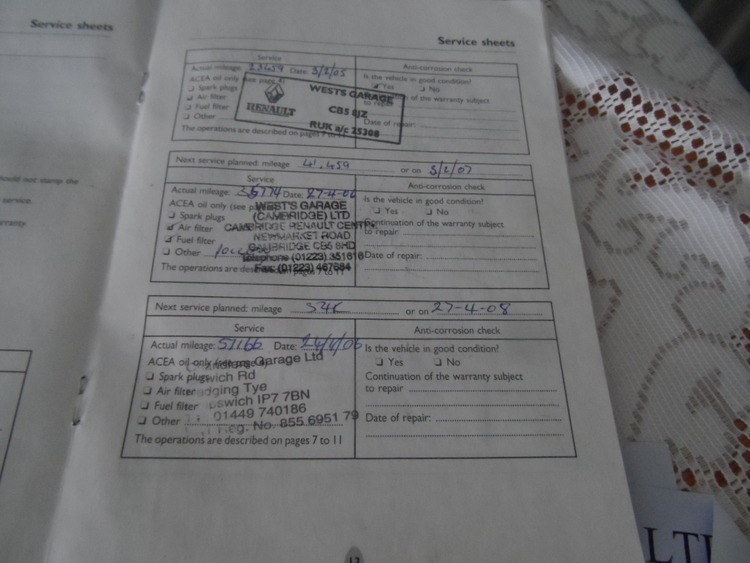 Service sheets
Service sheets
Service
Anti-corrosion check
Actual mileage: Date: 3/2/05
Is the vehicle in good condition?
ACEA oil only (see page 4)
Yes No
Spark plugs
Air filter
Fuel filter
Other
of the warranty subject
to repair
Date of repair:
The operations are described on pages 7 to 11
RENAULT
WESTS GARAGE
CB5 8JZ
RUK a/c 25308
Next service planned: mileage 41.459 or on 3/2/07
Service
Anti-corrosion check
Actual mileage: 35774 Date: 27-4-06
Is the vehicle in good condition?
ACEA oil only (see
Yes No
Spark plugs
Continuation of the warranty subject
to repair
Air filter
Fuel filter
Other
Date of repair:
The operations are described on pages 7 to 11
WEST'S GARAGE
(CAMBRIDGE) LTD
CAMBRIDGE RENAULT CENTRE
NEWMARKET ROAD
CAMBRIDGE CB5 8HD
Telephone (01223) 351616
Fax: (01223) 467684
Next service planned: mileage 54K or on 27-4-08
Service
Anti-corrosion check
Actual mileage: 51166 Date:
Is the vehicle in good condition?
ACEA oil only
Yes No
Spark plugs
Continuation of the warranty subject
to repair
Air filter
Fuel filter
Other
Date of repair:
The operations are described on pages 7 to 11
Garage Ltd
wich Rd
dging Tye
pswich IP7 7BN
01449 740186
eg. No. 855 6951 79
hould not stamp the
service.
rranty
12
LTI